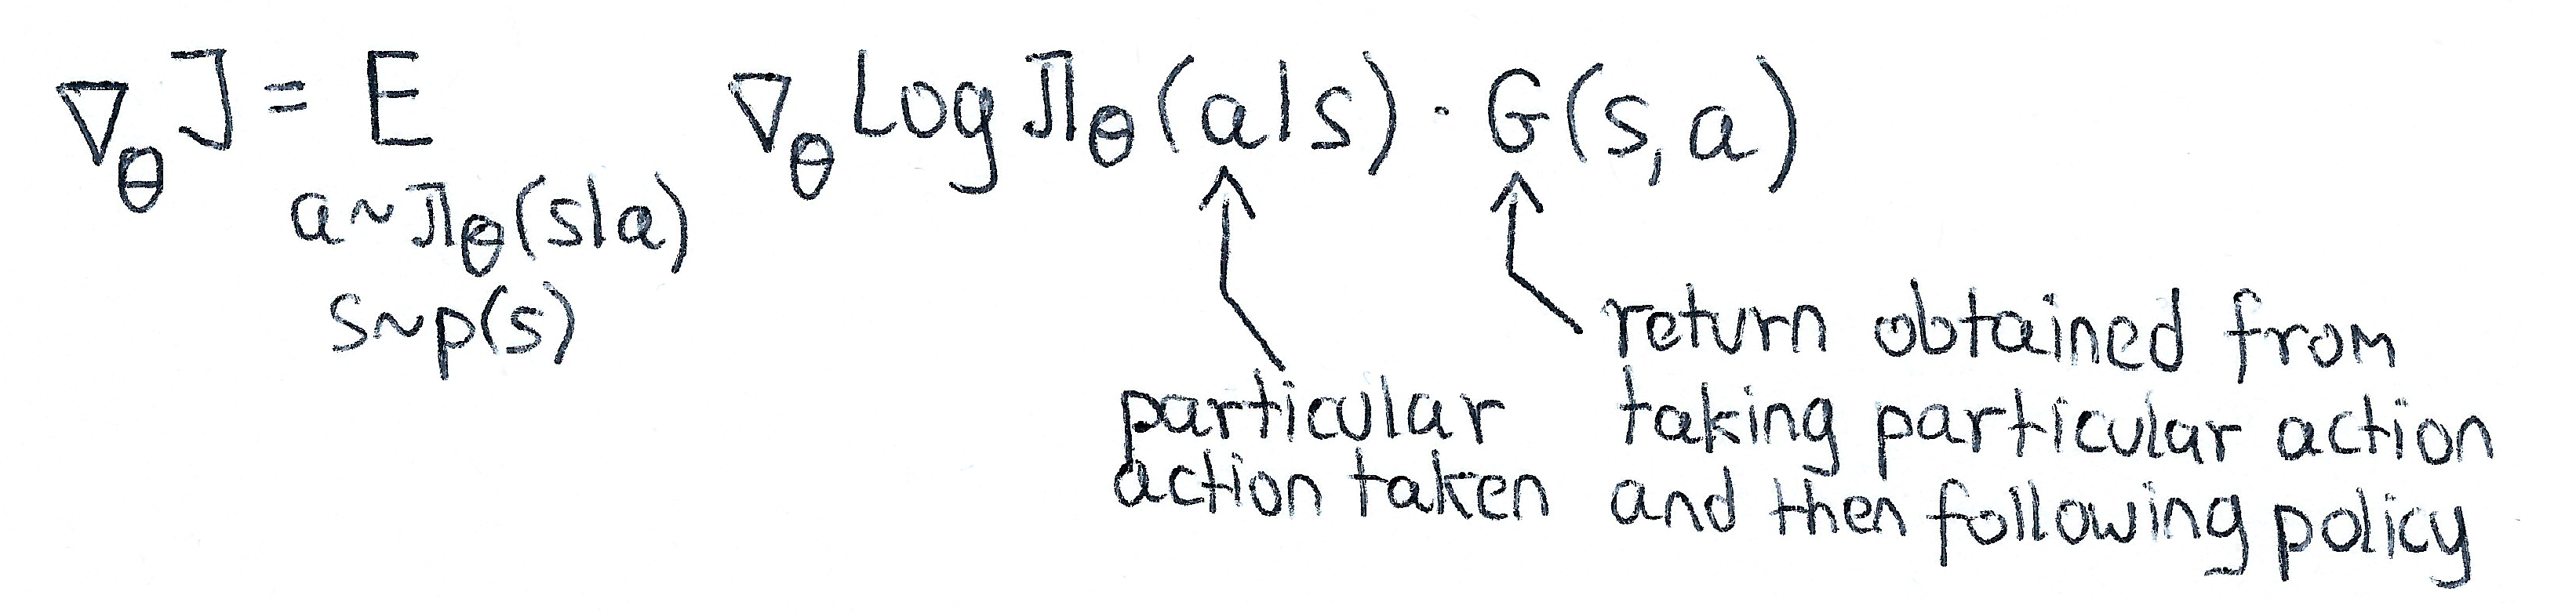 ∇θ J = E ∇θ Log πθ(a|s) · G(s,a)
a~πθ(s|a)
s~p(s)
particular
action taken
return obtained from
taking particular action
and then following policy